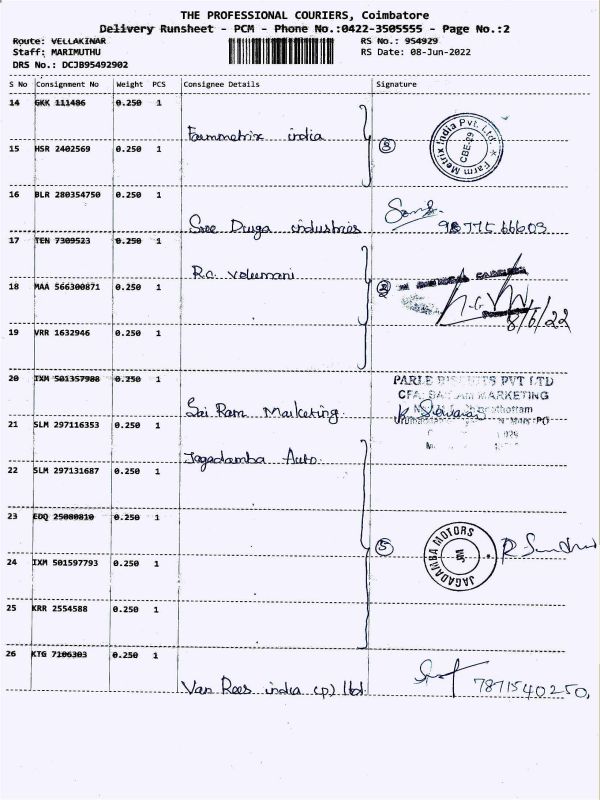 THE PROFESSIONAL COURIERS, Coimbatore
Delivery Runsheet - PCM - Phone No.:0422-3505555 - Page No.:2
Route: VELLAKINAR RS No.: 954929
Staff: MARIMUTHU RS Date: 08-Jun-2022
DRS No.: DCJB95492902
S No Consignment No Weight PCS Consignee Details Signature
14 GKK 111486 0.250 1
Farmmetrix india
Farm Metrix India Pvt. Ltd. * CBE-29
15 HSR 2402569 0.250 1 2
16 BLR 280354750 0.250 1
Sree Durga industries
17 TEN 7309523 0.250 1
R.G.
18 MAA 566300871 0.250 1
8/6/22
19 VRR 1632946 0.250 1
20 IXM 501357988 0.250 1 PARLE PVT LTD
MARKETING
Sai Ram Marketing
21 SLM 297116353 0.250 1
Jagadamba Auto
22 SLM 297131687 0.250 1
23 EDQ 25080810 0.250 1
5 JAGADAMBA MOTORS JM
24 IXM 501597793 0.250 1
25 KRR 2554588 0.250 1
26 KTG 7106303 0.250 1
Van Rees india (p) ltd. 7871540250,